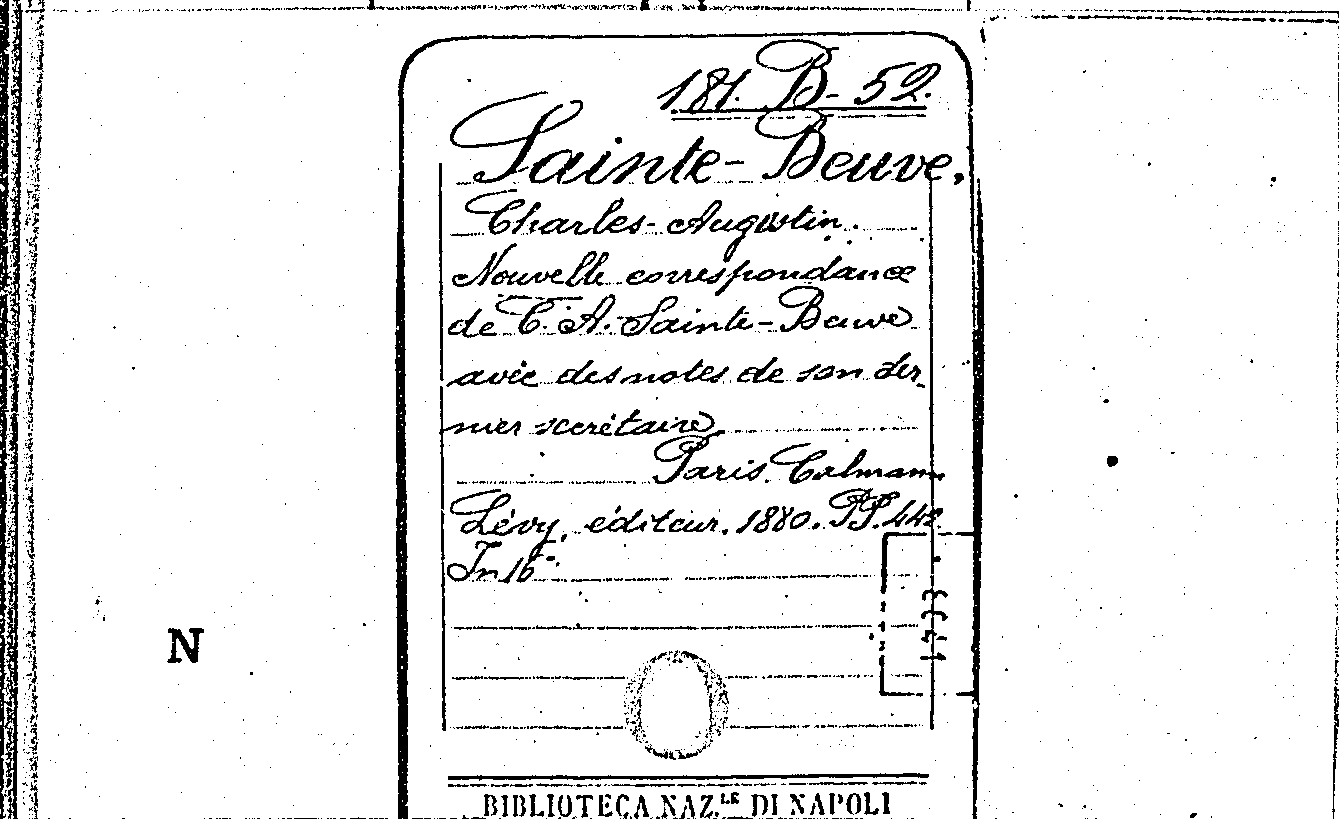 181. B- 52.
Sainte-Beuve,
Charles-Augustin.
Nouvelle correspondance
de C. A. Sainte-Beuve
avec des notes de son der-
nier secrétaire
Paris. Calmann
Lévy, éditeur. 1880. PP. 442.
In 16°.
N
BIBLIOTECA NAZ.LE DI NAPOLI